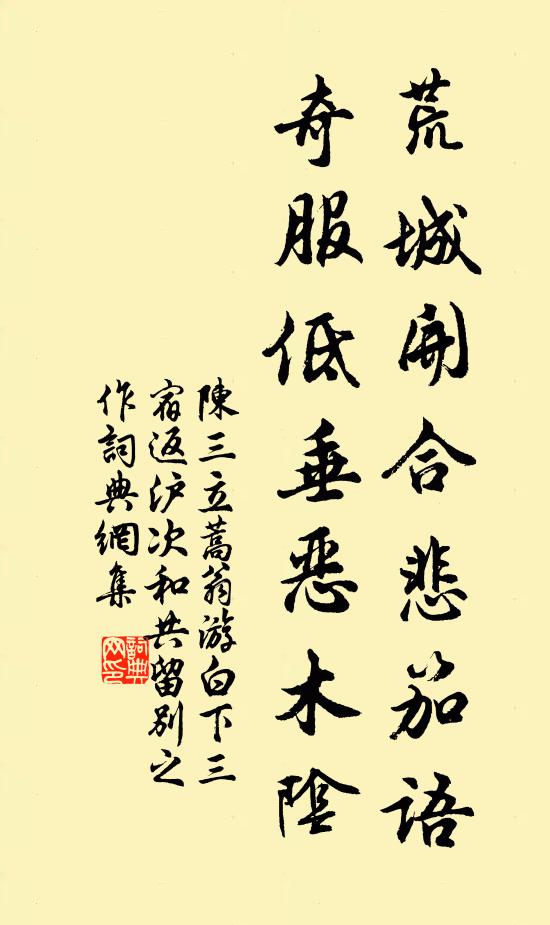 荒城開合悲笳語
奇服低垂惡木陰
陳三立蒿翁游白下三
宿返沪次和共留别之
作詞典網集
詞典
网印